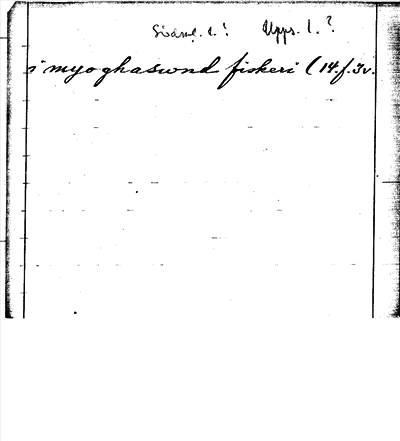 Södml. l.! Upps. l.?
i myoghaswnd fiskeri (14.f.3v.